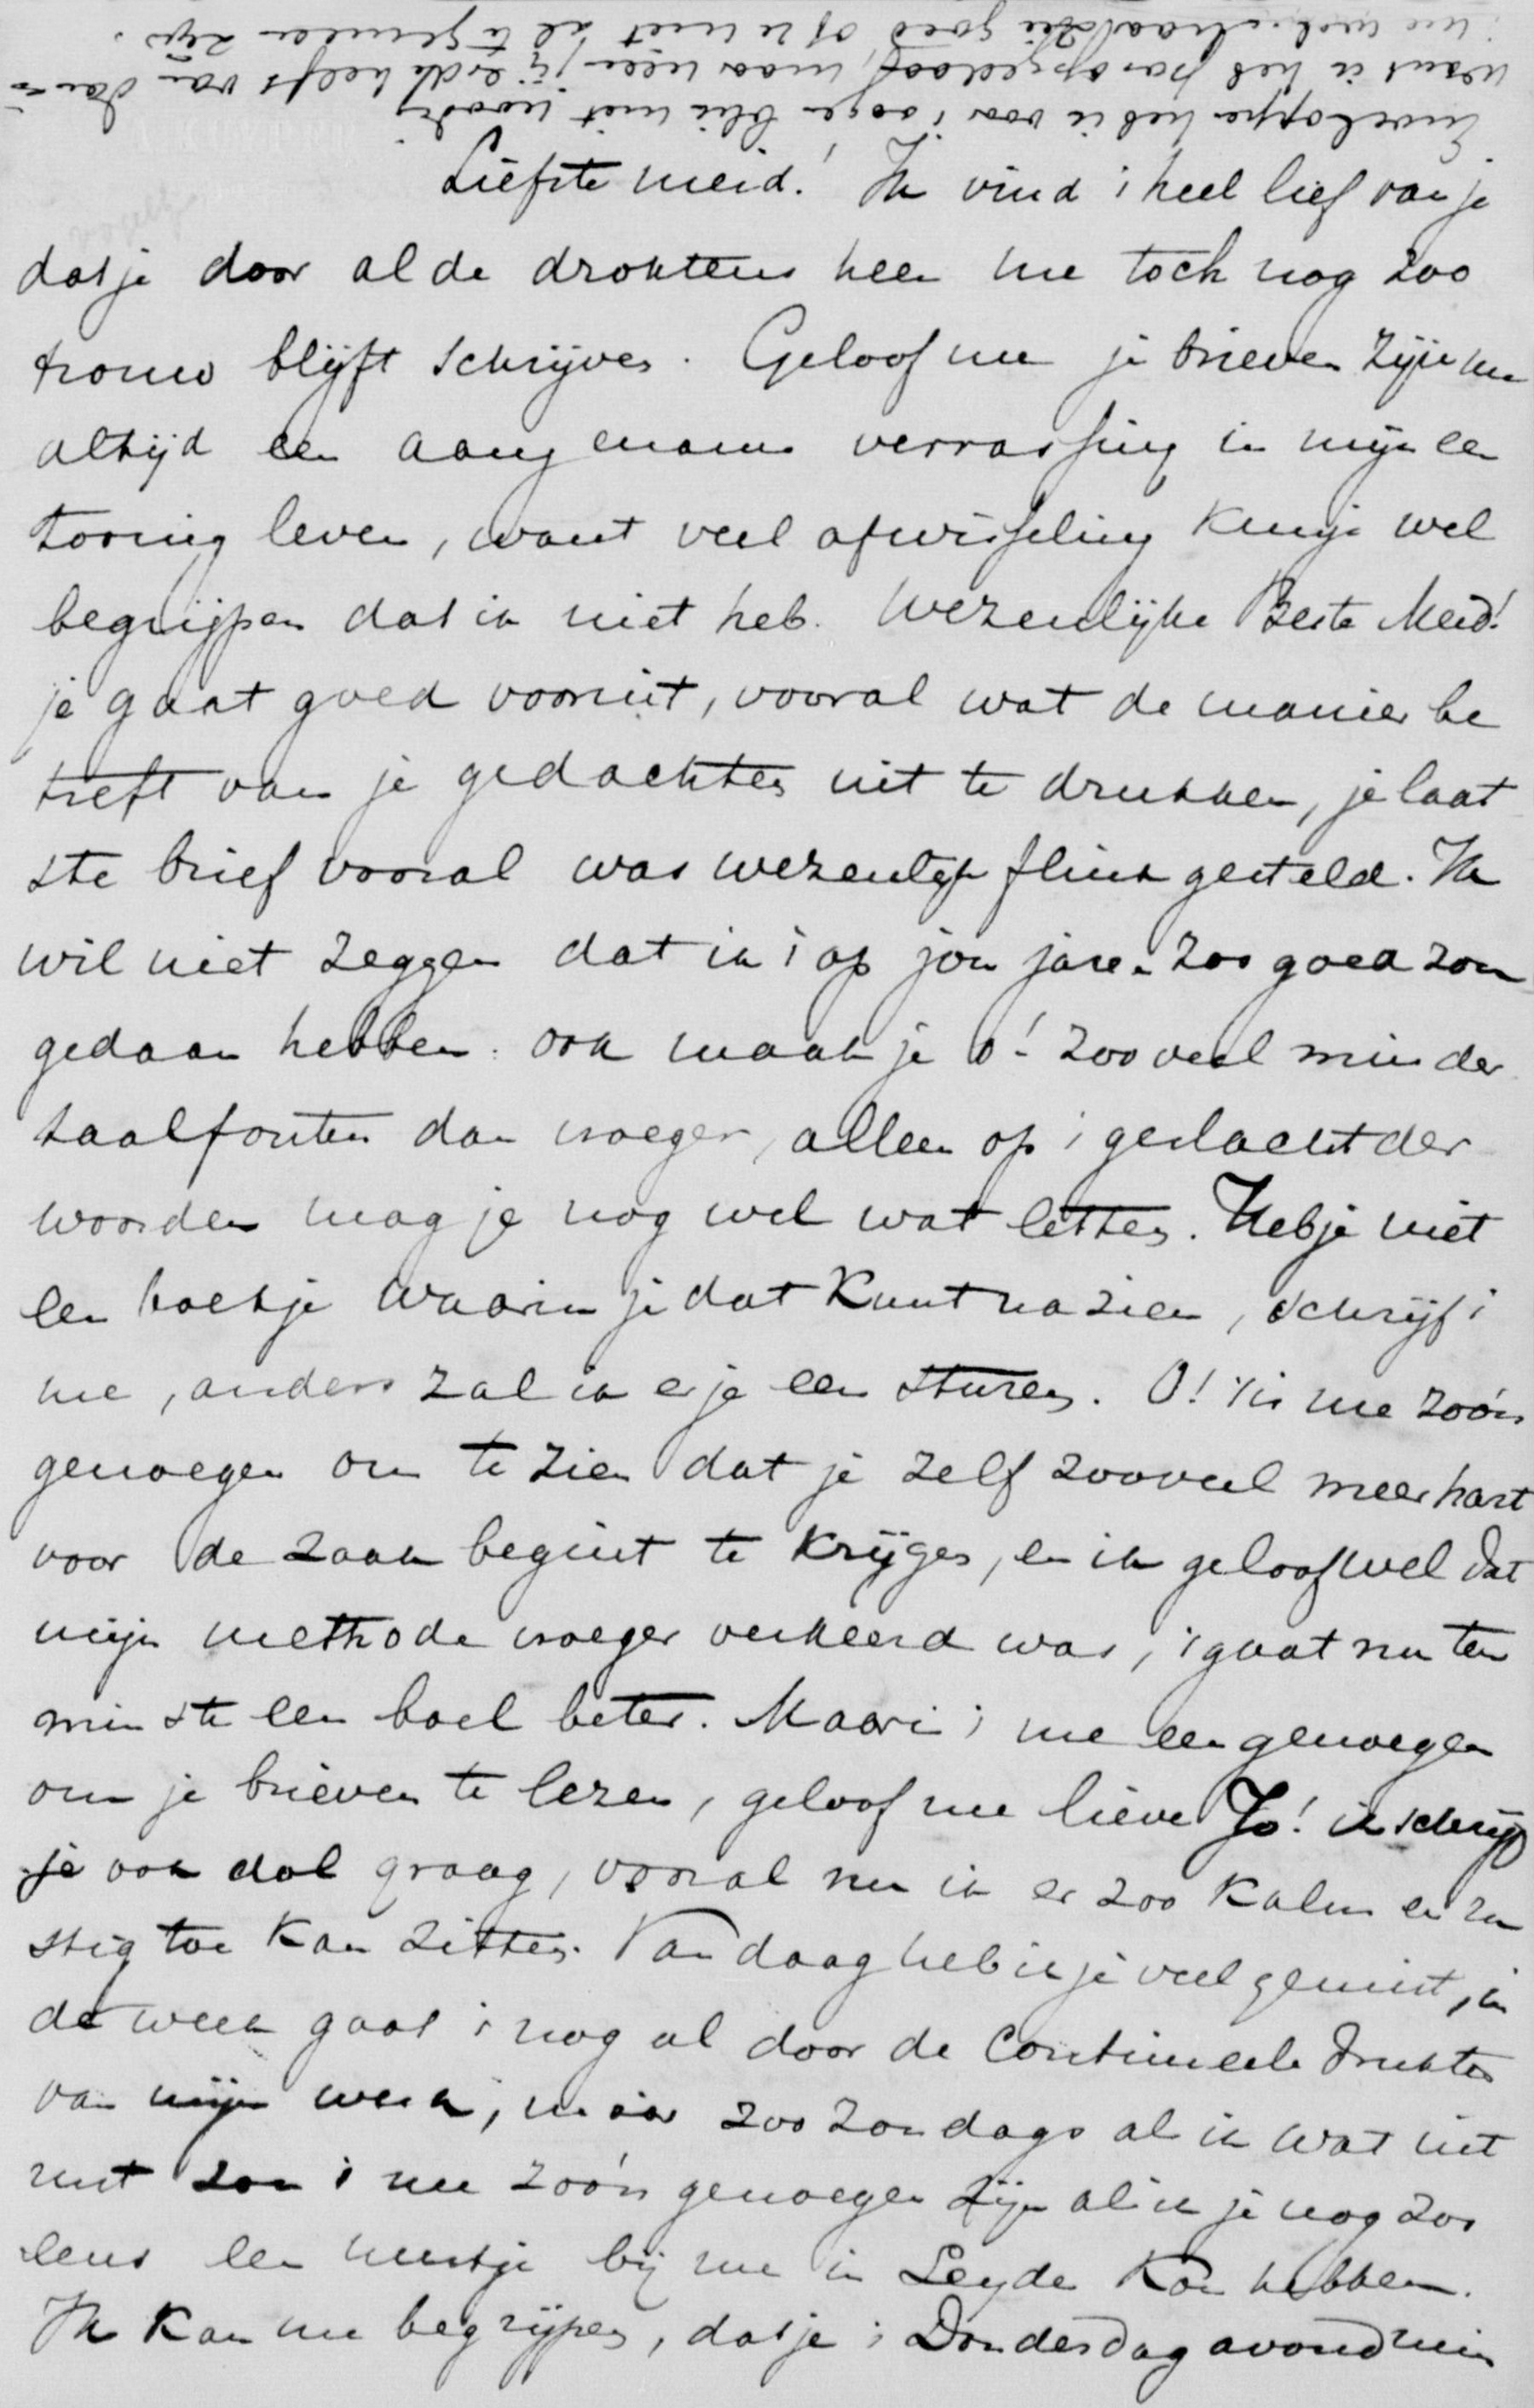 Enveloppen heb ik voor 't oogenblik niet noodig
want ik heb pas opgedaan, maar neem jij er de helft van dan is
Liefste meid! Ik vind 't heel lief van je
dat je door al de droktens heen me toch nog zoo
trouw blijft schrijven. Geloof me je brieven zijn me
altijd een aangename verrassing in mijn een
toonig leven, want veel afwisseling kun je wel
begrijpen dat ik niet heb. Wezenlijke Beste Meid!
je gaat goed vooruit, vooral wat de manier be
treft van je gedachten uit te drukken, je laat
ste brief vooral was wezenlijk flink gesteld. Ik
wil niet zeggen dat ik 't op jou jaren zoo goed zou
gedaan hebben. ook maak je o! zooveel minder
taalfouten dan vroeger, alleen op 't geslacht der
woorden mag je nog wel wat letten. Heb je niet
een boekje waarin je dat kunt nazien, schrijf 't
me, anders zal ik er je een sturen. O! 't is me zoo'n
genoegen om te zien dat je zelf zooveel meer hart
voor de zaak begint te krijgen, en ik geloof wel dat
mijn methode vroeger verkeerd was, 't gaat nu ten
minste een boel beter. Maar 't is me een genoegen
om je brieven te lezen, geloof me lieve Jo! ik schrijf
je ook dol graag, vooral nu ik er zoo kalm en ru
stig toe kan zitten. Vandaag heb ik je veel gemist, in
de week gaat 't nog al door de continueele drukte
van mijn werk, maar zoo Zondags als ik wat uit
rust zou 't me zoo'n genoegen zijn als ik je nog zoo
eens een uurtje bij me in Leyde kon hebben.
Ik kan me begrijpen, dat je 't Donderdag avond